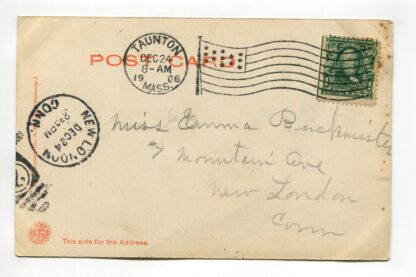 TAUNTON
DEC 24
8-AM
1906
MASS.
POST CARD
NEW LONDON
DEC 24
CONN.
Miss Emma Buckmister
7 Mountain Ave
New London
Conn
This side for the Address.